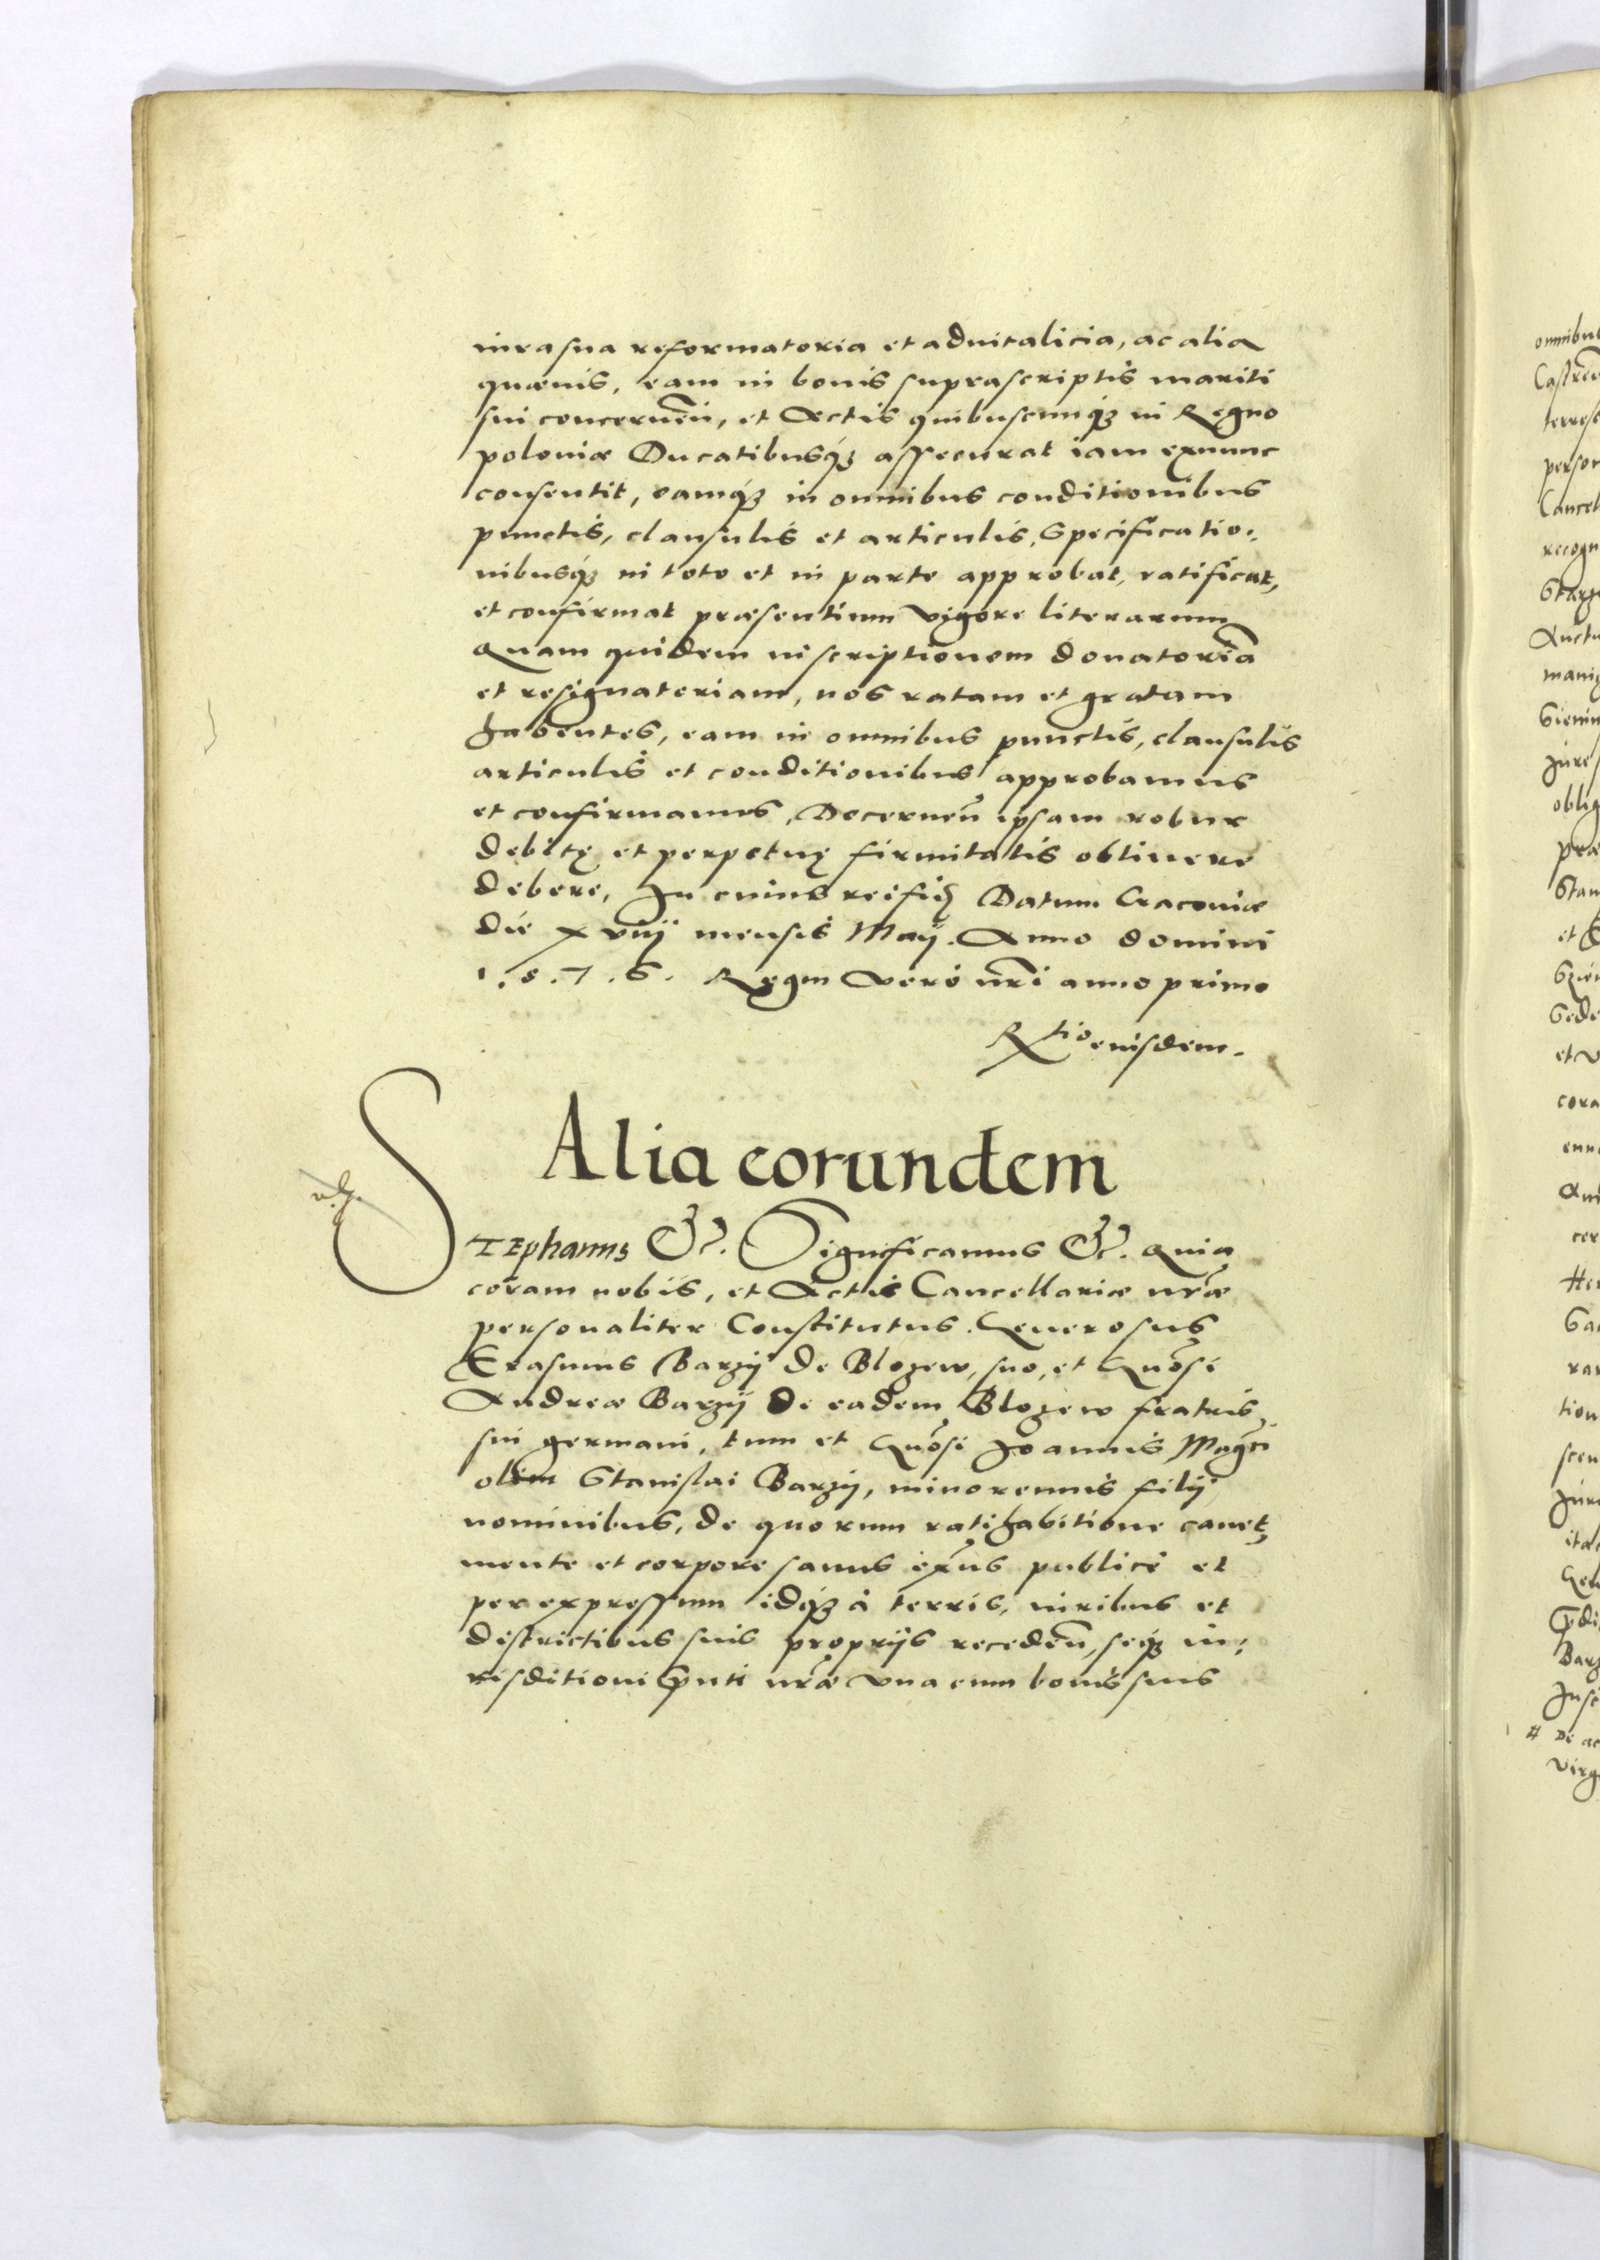 iura sua reformatoria et aduitalicia, ac alia
quæuis, eam in bonis suprascriptis mariti
sui concernẽn, et Actis quibuscunq́ꝫ in Regno
poloniæ Ducatibusq́ꝫ assecurat iam exnunc
consentit, eamq́ꝫ in omnibus conditionibus
punctis, clausulis et articulis, Specificatio:
nibusq́ꝫ in toto et in parte approbat, ratificat,
et confirmat præsentium vigore literarum
Quam quidem inscriptionem donatoriã
et resignatoriam, nos ratam et gratam
habentes, eam in omnibus punctis, clausulis
articulis et conditionibus approbamus
et confirmamus, Decernẽn ipsam robur
debitę et perpetuę firmitatis obtinere
debere, In cuius rei fidꝫ Datum Cracouiæ
die xviij mensis Maij. Anno domini
1.5.7.6. Regni vero nr̃i anno primo
Rtio eiusdem.
Alia eorundem
STEphanus &c. Significamus &c. Quia
coram nobis, et Actis Cancellariæ nr̃æ
personaliter Constitutus. Generosus
Erasmus Barzÿ de Blozew, suo, et Gñosi
Andreæ Barzÿ de eadem Blozew fratris
sui germani, tum et Gñosi Joannis Magci
olim Stanislai Barzÿ, minorennis filÿ
nominibus, de quorum ratihabitione cauet,
mente et corpore sanus exñs publicè et
per expressum idq́ꝫ à terris, iuribus et
districtibus suis proprijs recedẽn, seq́ꝫ iu:
risditioni p̃nti nr̃æ vna cum bonis suis